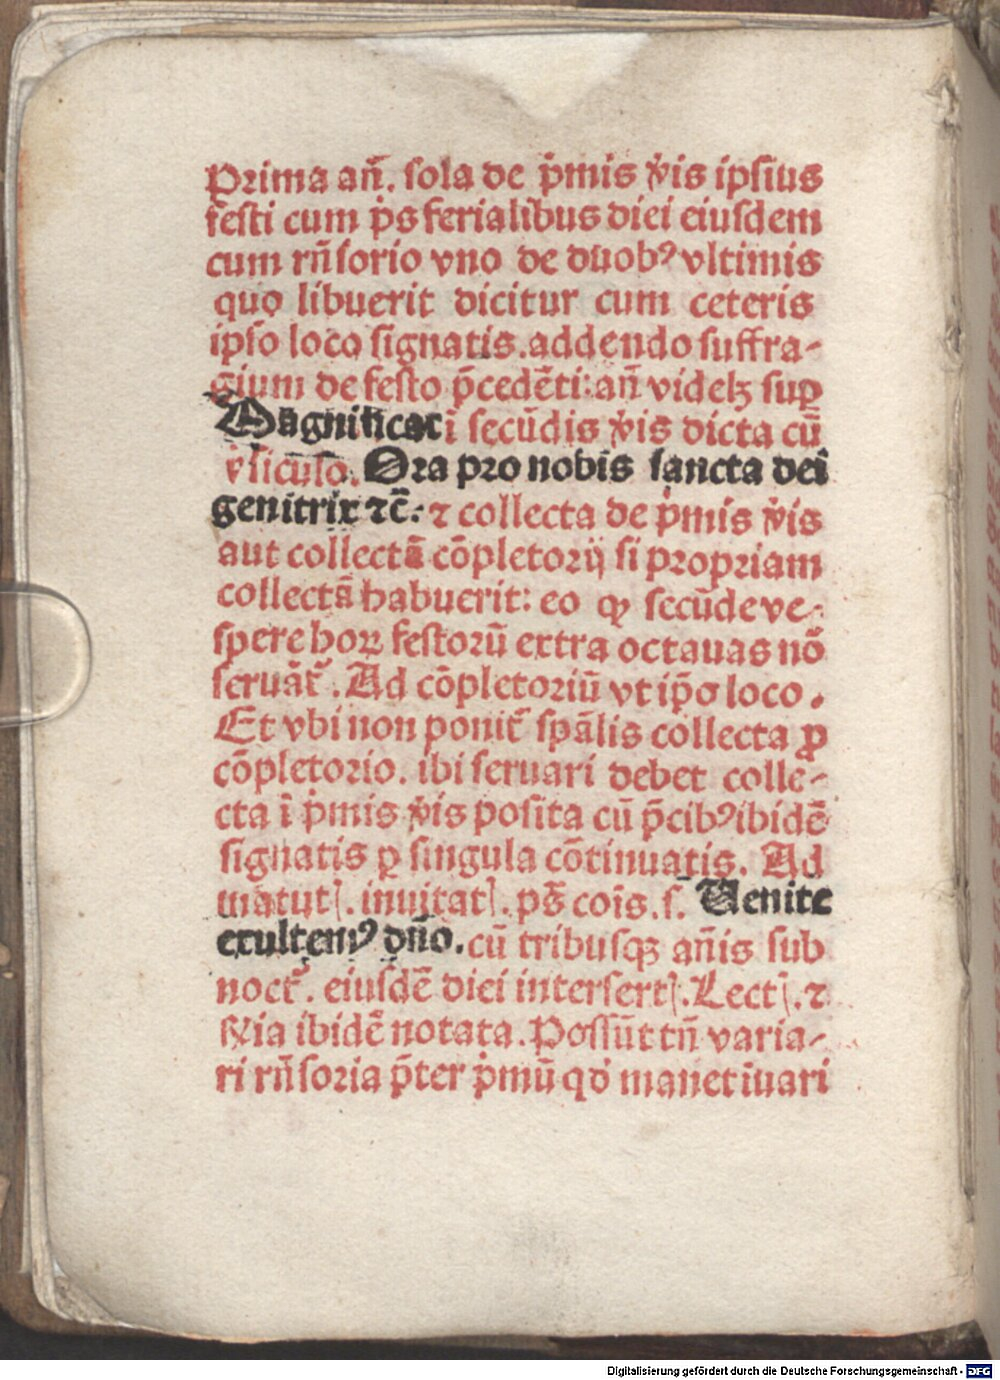 Prima añ. sola de p̍mis v̍is ipsius
festi cum p̄s ferialibus diei eiusdem
cum rn̄sorio vno de duobꝰ vltimis
quo libuerit dicitur cum ceteris
ipso loco signatis.addendo suffra-
gium de festo p̄cedēti:añ videlꝫ suꝑ
Magnificat ī secūdis v̍is dicta cū
v̍siculo. Ora pro nobis sancta dei
genitrix ⁊c̄.: ⁊ collecta de p̍mis v̍is
aut collectā cōpletorij si propriam
collectā habuerit: eo ꝙ secūde ve-
spere hoꝝ festorū extra octauas nō
seruāt̉. Ad cōpletoriū vt ip̄o loco.
Et vbi non ponit̉ sp̄alis collecta ꝓ
cōpletorio. ibi seruari debet colle-
cta ī p̍mis v̍is posita cū p̄cibꝰ ibidē
signatis ꝑ singula cōtinuatis. Ad
matutꝭ. inuitatꝭ. ps̄ cois̄.s. Uenite
exultemꝰ dño. cū tribusqꝫ añis sub
noct̉. eiusdē diei intersertꝭ. Lectꝭ. ⁊
℟ia ibidē notata. Possūt tñ varia-
ri rn̄soria p̄ter p̍mū qd̍ manet īuari
Digitalisierung gefördert durch die Deutsche Forschungsgemeinschaft - DFG